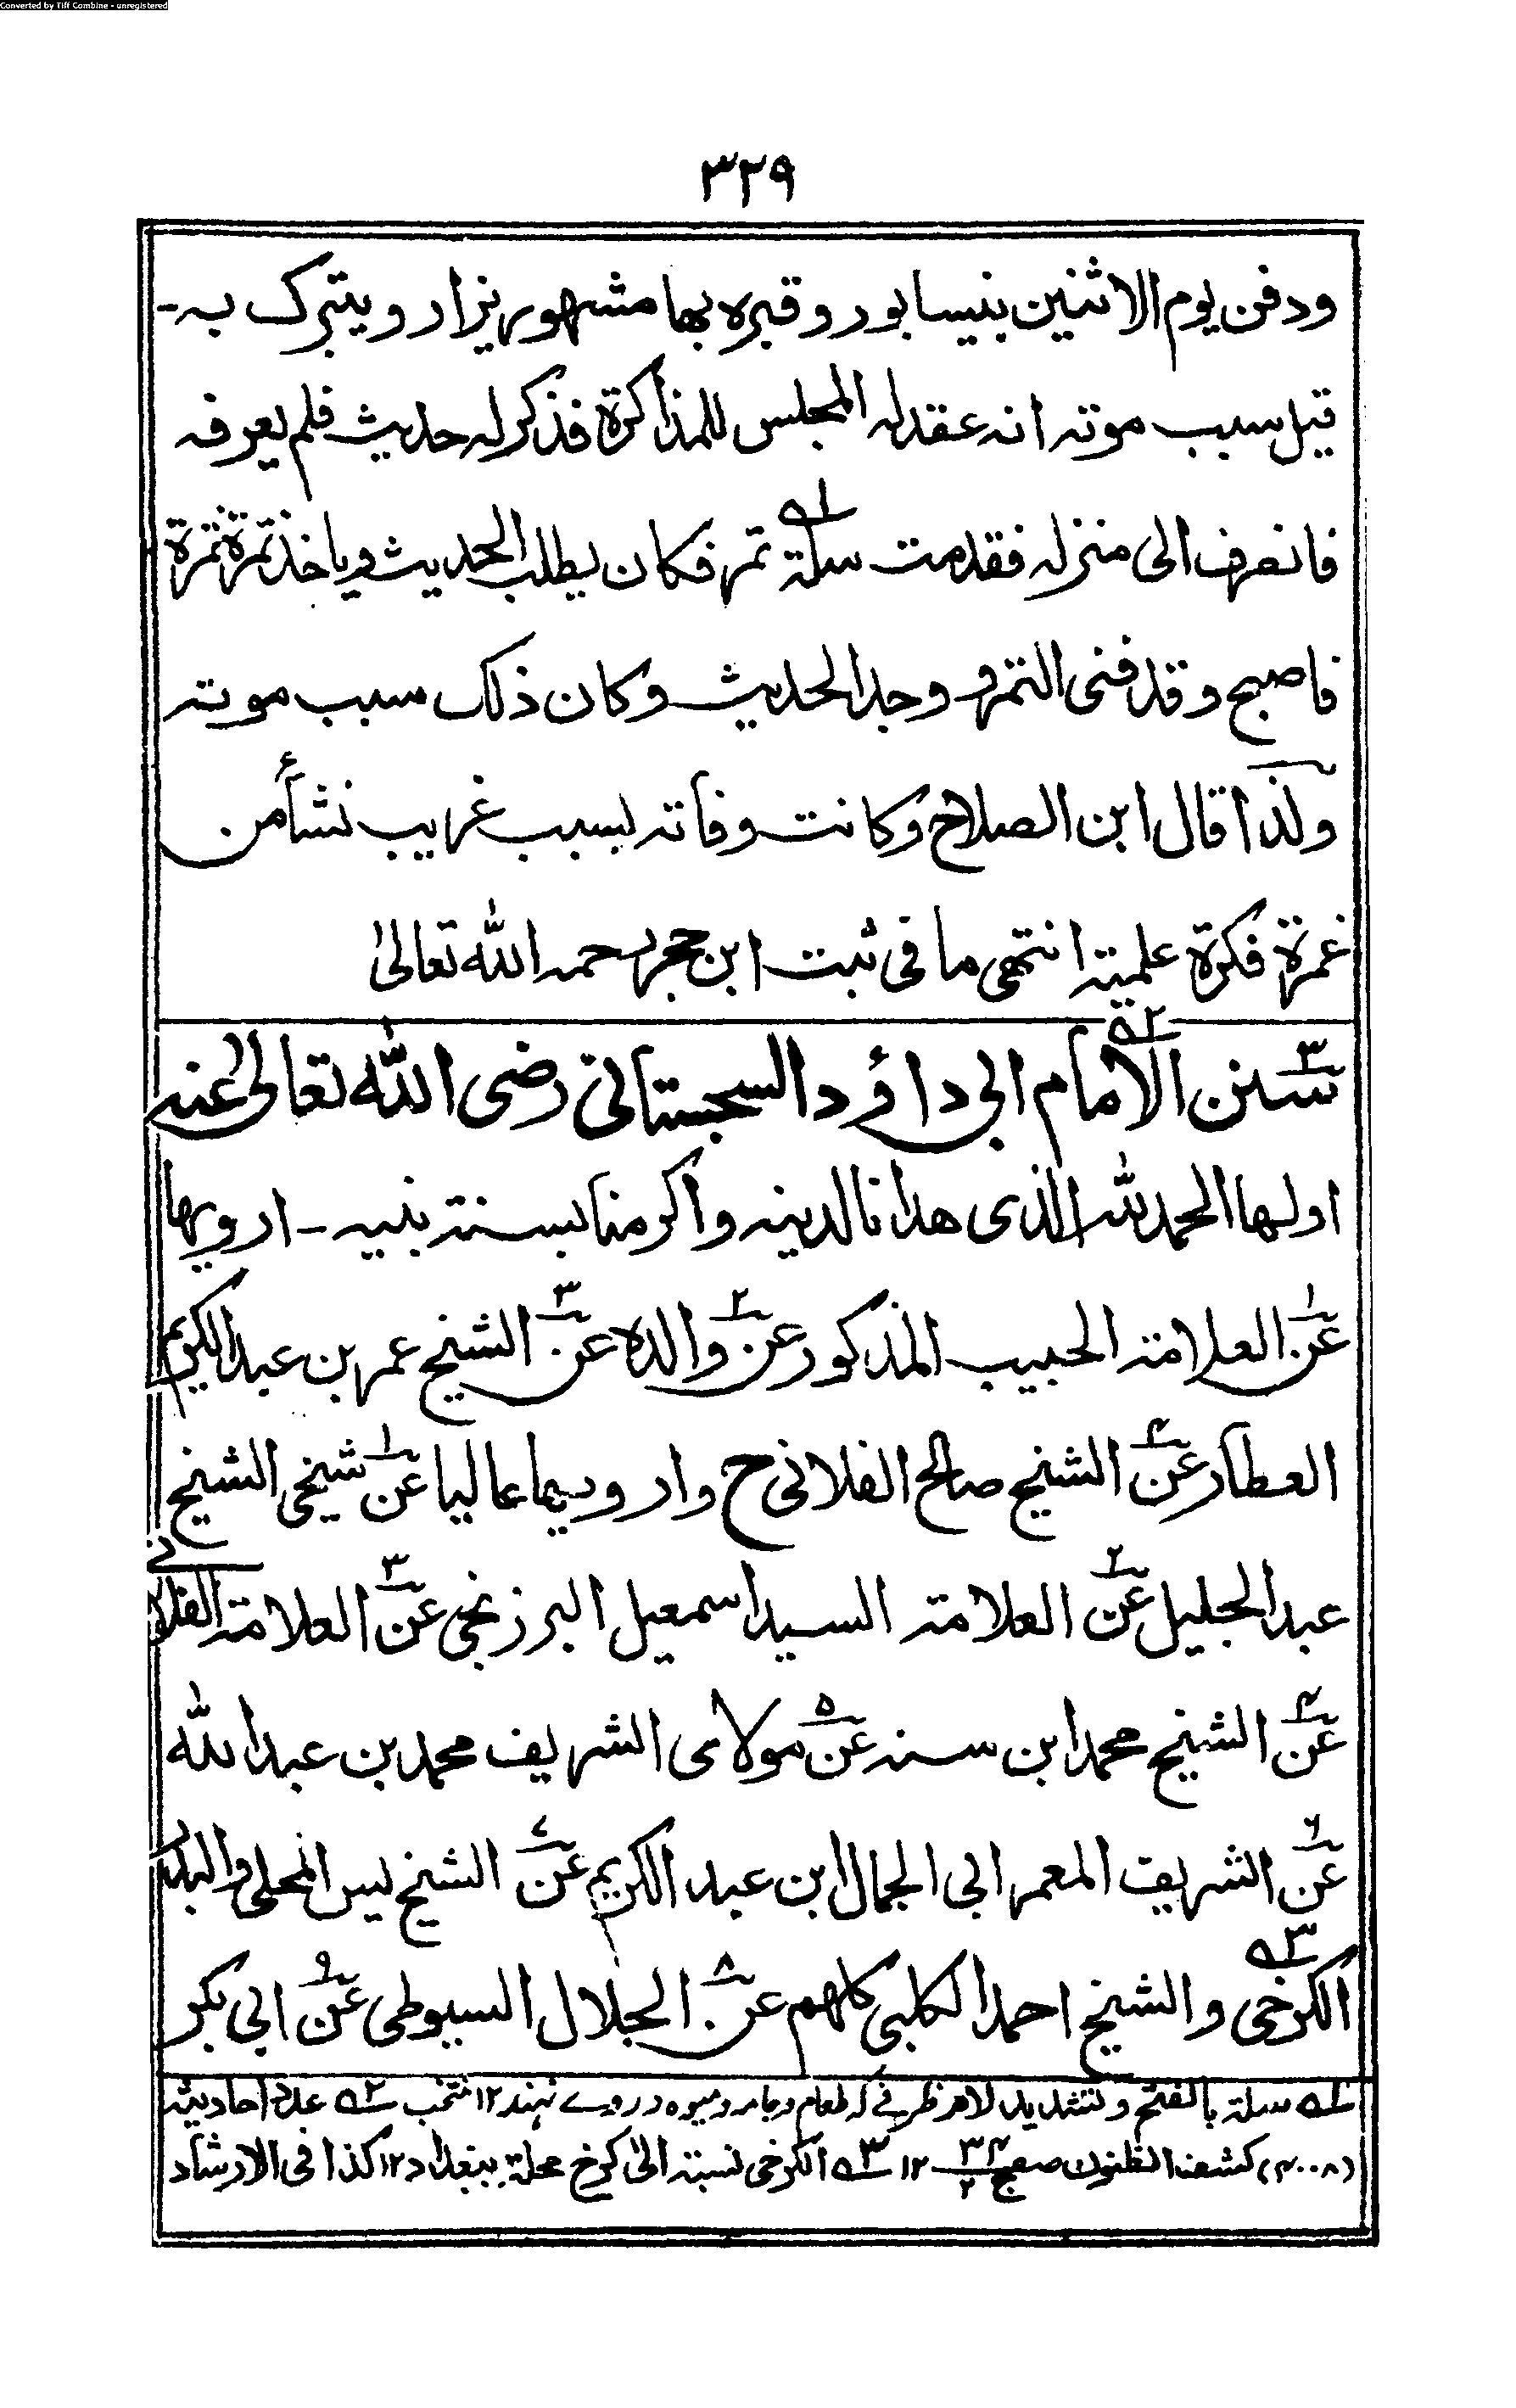 Converted by Tiff Combine - unregistered
٣٢٩
ودفن يوم الاثنين بنيسابور وقبره بها مشهور يزار ويتبرك به -
قيل سبب موته انه عقد له المجلس للمذاكرة فذكر له حديث فلم يعرفه
فانصرف الى منزله فقدمت سلة ١ه تمر فكان يطلب الحديث وياخذ تمرة تمرة
فاصبح وقد فنى التمر و وجد الحديث وكان ذلك سبب موته
ولذا قال ابن الصلاح وكانت وفاته بسبب غريب نشأ من
غمرة فكرة علمية انتهى ما فى ثبت ابن حجر رحمه الله تعالىٰ
٣ سنن الامام ٢ه ابى داؤد السجستانى رضى الله تعالى عنه
اولها الحمد لله الذى هدانا لدينه واكرمنا بسنة نبيه - ارويها
عن ١ العلامة الحبيب المذكور عن ٢ والده عن ٣ الشيخ عمر بن عبد الكريم
العطار عن ٤ الشيخ صالح الفلانى ح وارويها عاليا عن ١ شيخى الشيخ
عبد الجليل عن ٢ العلامة السيد اسمعيل البرزنجى عن ٣ العلامة الفلانے
عن ٤ الشيخ محمد ابن سنه عن ٥ مولاى الشريف محمد بن عبد الله
عن ٦ الشريف المعمر ابى الجمال ابن عبد الكريم عن ٧ الشيخ يس المحلى والبدر
الكرخى ٣ه والشيخ احمد الكلبى كلهم عن ٨ الجلال السيوطى عن ٩ ابى بكر
١ه سلة بالفتح وتشديد لام ظرفے كه طعام وجامه وميوه در وے نہند ١٢ منتخب ٢ه عدد احاديثه
(٤٠٠٨) كشف الظنون صفحه ٣٤/٢ ١٢ ٣ه الكرخى نسبة الىٰ كرخ محلة ببغداد ١٢ كذا فى الارشاد